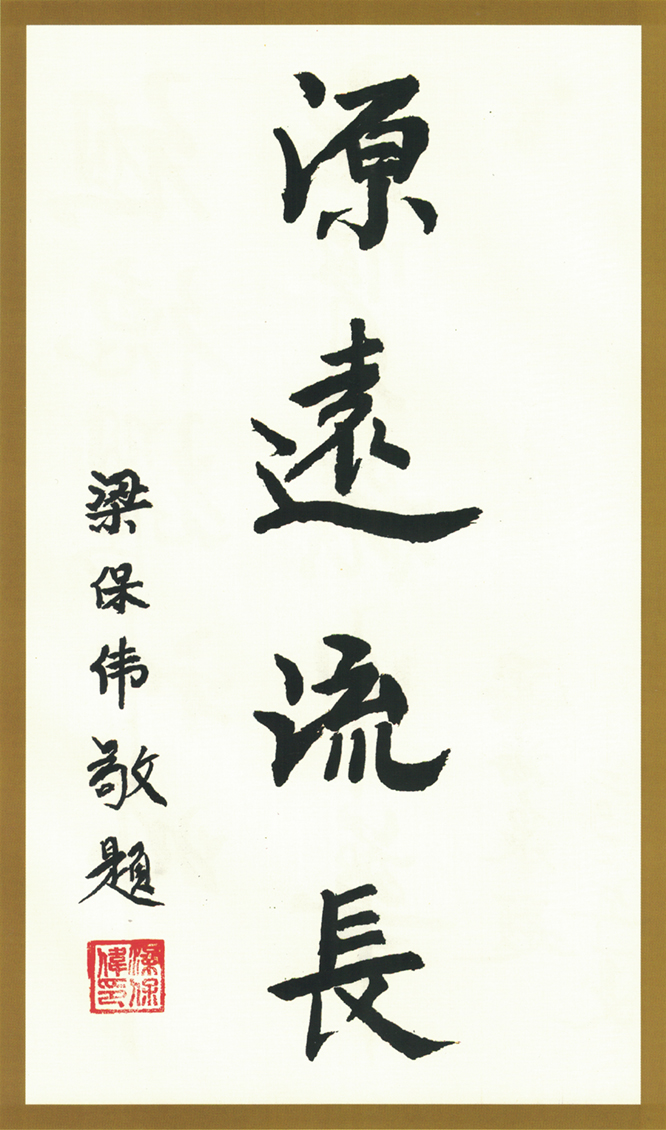 源遠流長
梁保伟敬題
梁保偉印